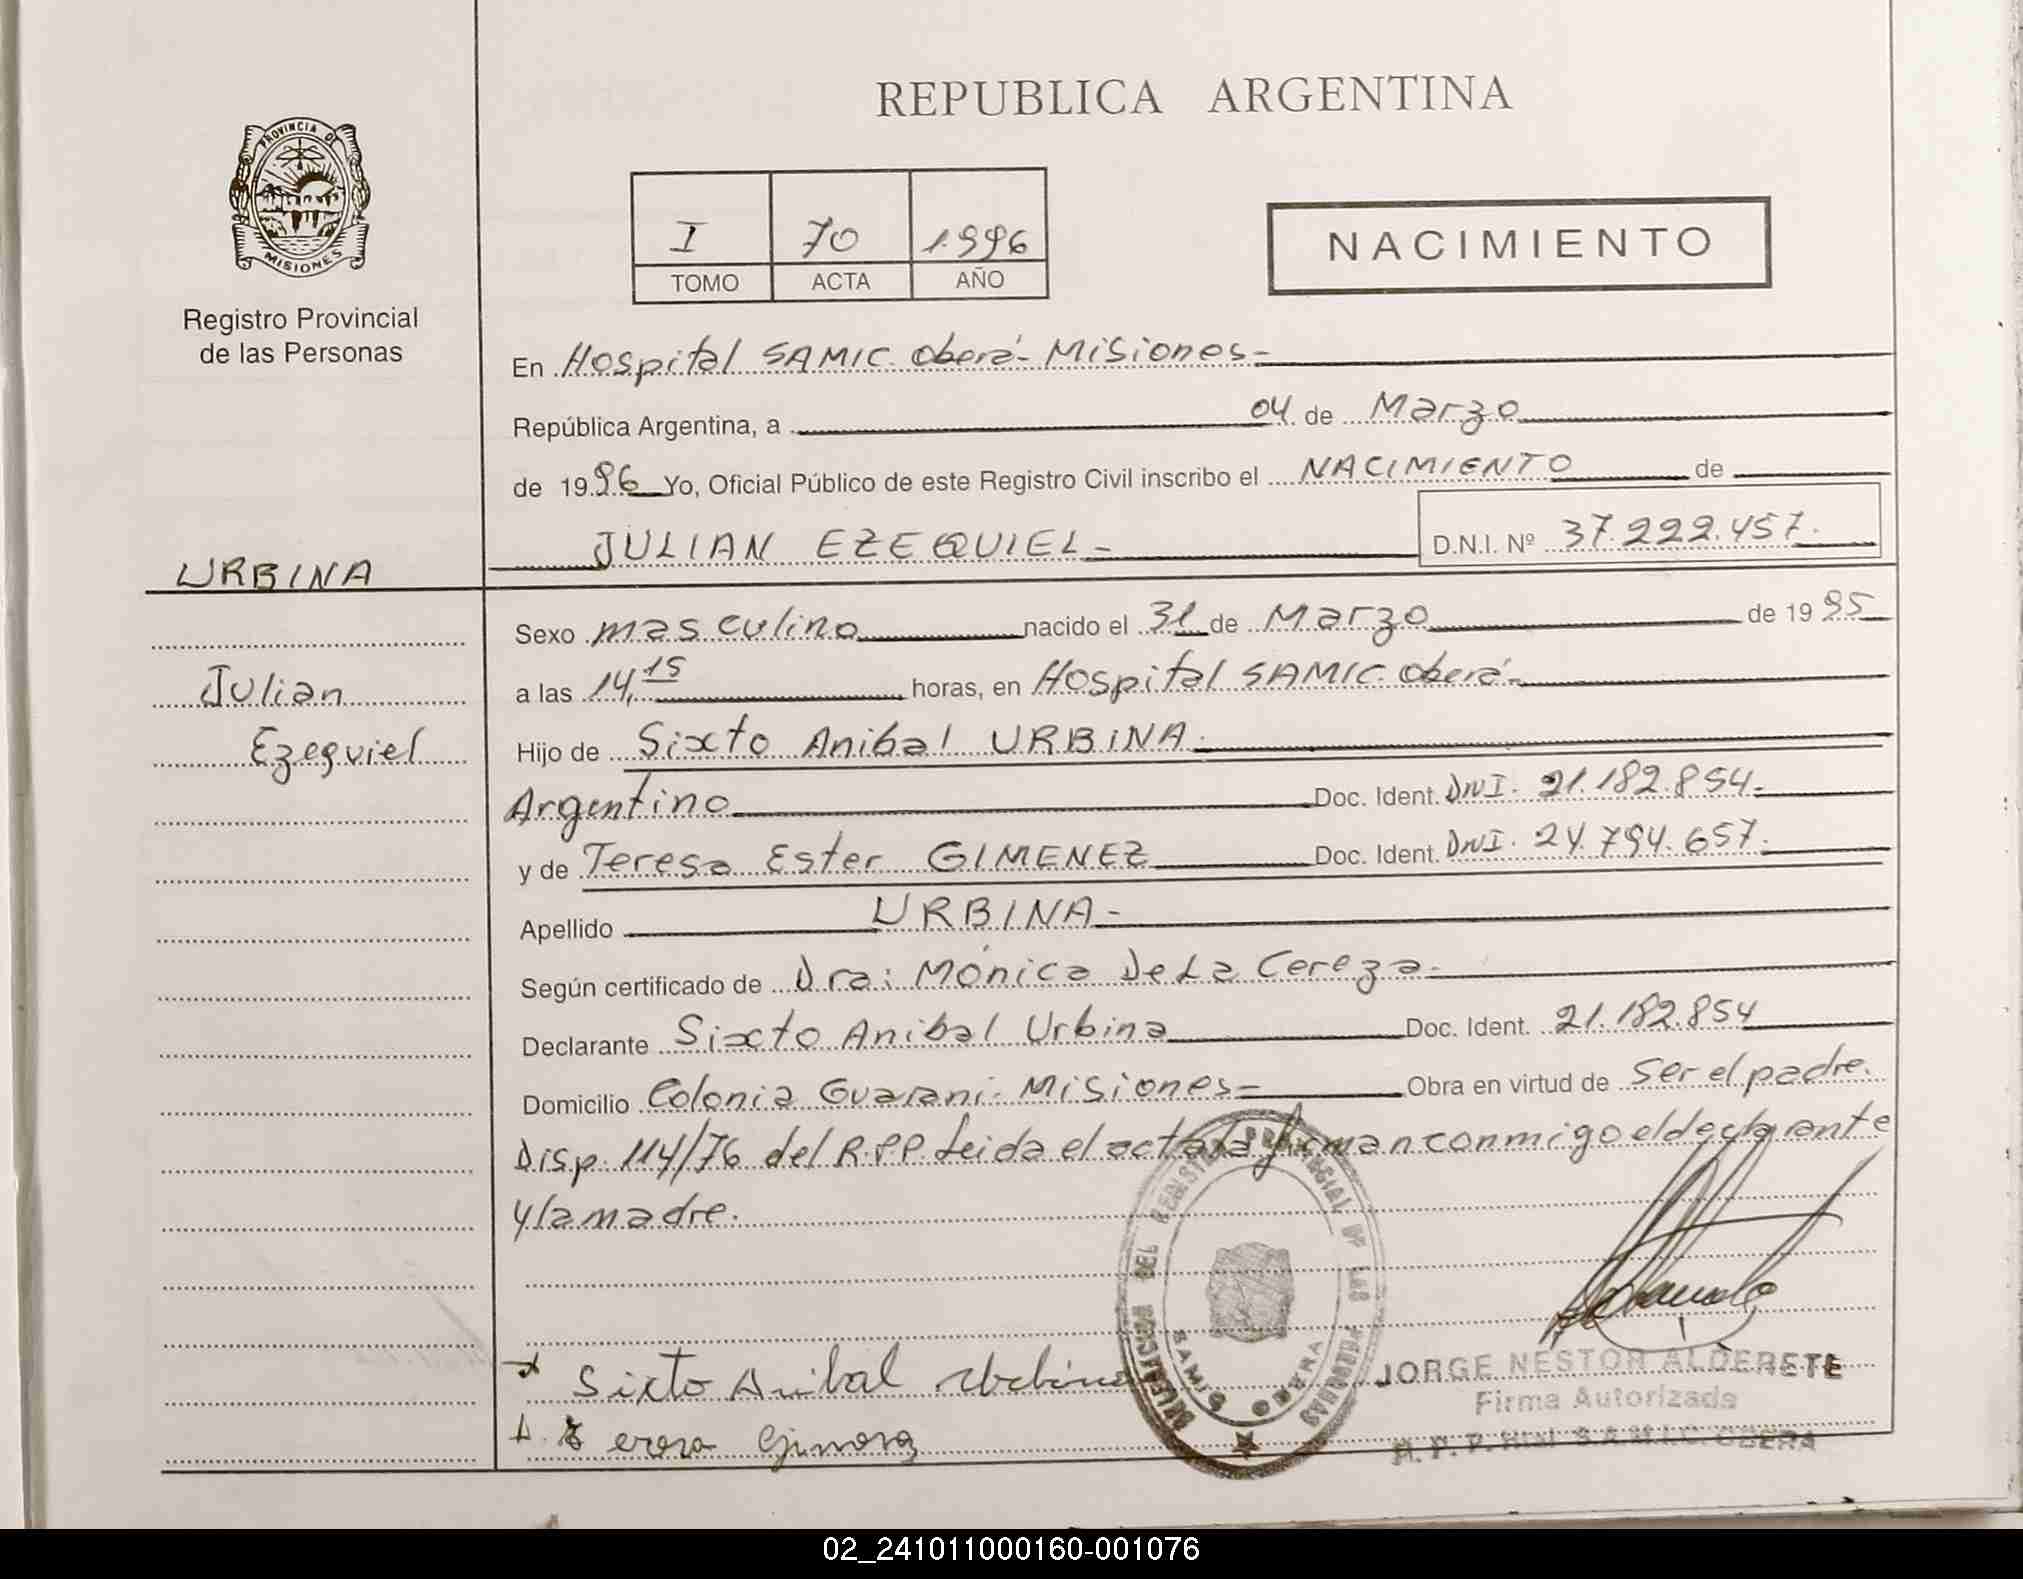 REPUBLICA ARGENTINA
PROVINCIA DE
MISIONES
Registro Provincial
de las Personas
I 70 1.996
TOMO ACTA AÑO
NACIMIENTO
En Hospital SAMIC. Oberá- Misiones-
República Argentina, a 04 de Marzo
de 1996 Yo, Oficial Público de este Registro Civil inscribo el NACIMIENTO de
JULIAN EZEQUIEL- D.N.I. Nº 37.222.457.
URBINA
Julian
Ezequiel
Sexo masculino nacido el 31 de Marzo de 1995
a las 14,15 horas, en Hospital SAMIC. Oberá-
Hijo de Sixto Anibal URBINA.
Argentino Doc. Ident. DNI. 21.182.854.
y de Teresa Ester GIMENEZ Doc. Ident. DNI. 24.794.657.
Apellido URBINA-
Según certificado de Dra: Mónica De La Cereza-
Declarante Sixto Anibal Urbina Doc. Ident. 21.182.854
Domicilio Colonia Guarani- Misiones= Obra en virtud de ser el padre.
Disp. 114/76 del R.P.P. Leida el acta la firman conmigo el declarante
y la madre.
DELEGACION DEL REGISTRO PROVINCIAL DE LAS PERSONAS
SAMIC OBERA
Sixto Anibal Urbina
JORGE NESTOR ALDERETE
Firma Autorizada
R. P. P. Htal S.A.M.I.C. OBERA
02_241011000160-001076